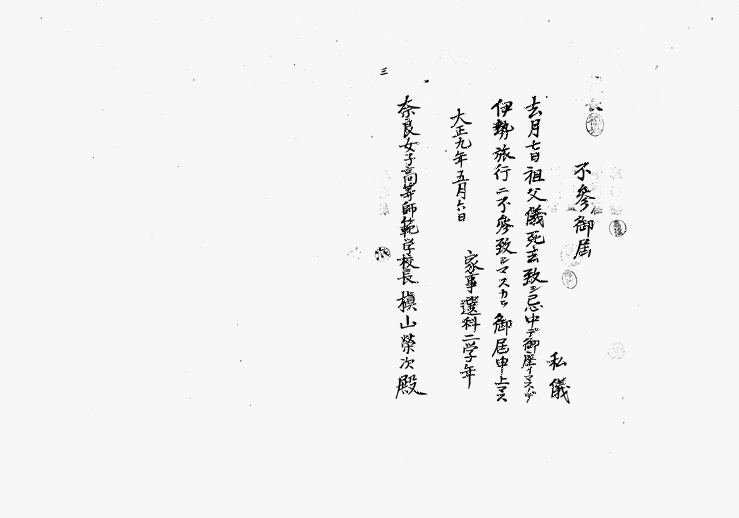 不參御届
私儀
去月七日祖父儀死去致シ忌中デ御座イマスデ
伊勢旅行ニ不參致シマスカラ御届申上マス
大正九年五月六日
家事選科二学年
奈良女子高等師範学校長槇山榮次殿
三